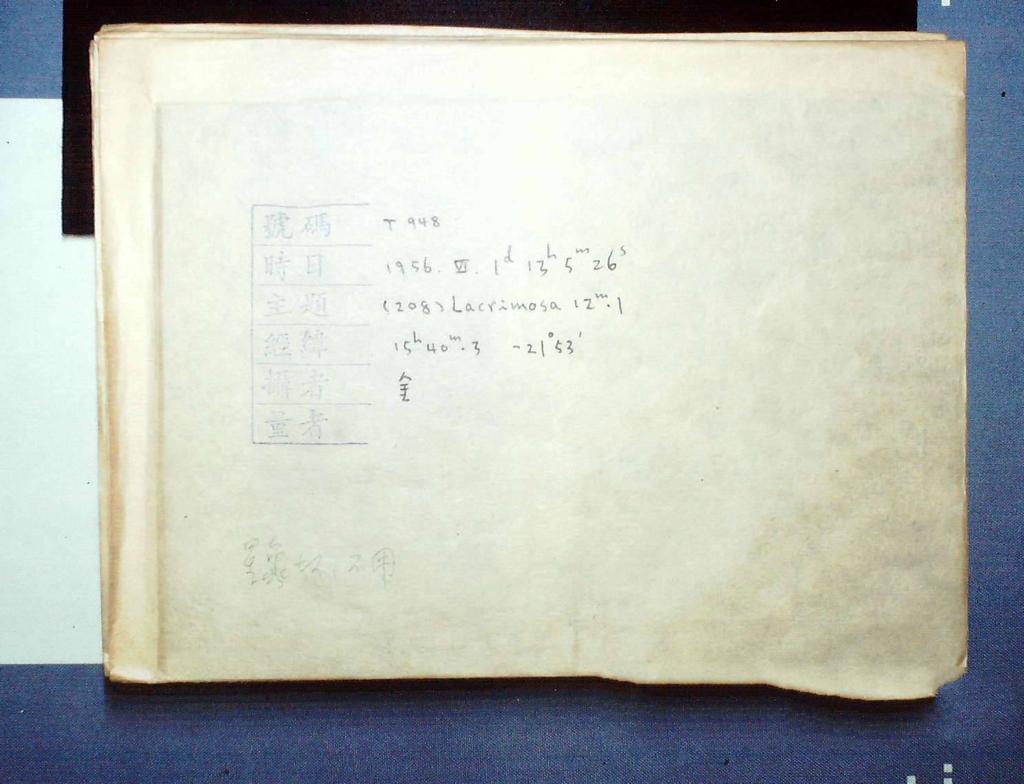 號碼 T 948
時日 1956. VI. 1ᵈ 13ʰ 5ᵐ 26ˢ
主題 (208) Lacrimosa 12ᵐ.1
經緯 15ʰ 40ᵐ.3 -21°53′
攝者 全
量者
星象坏, 不用